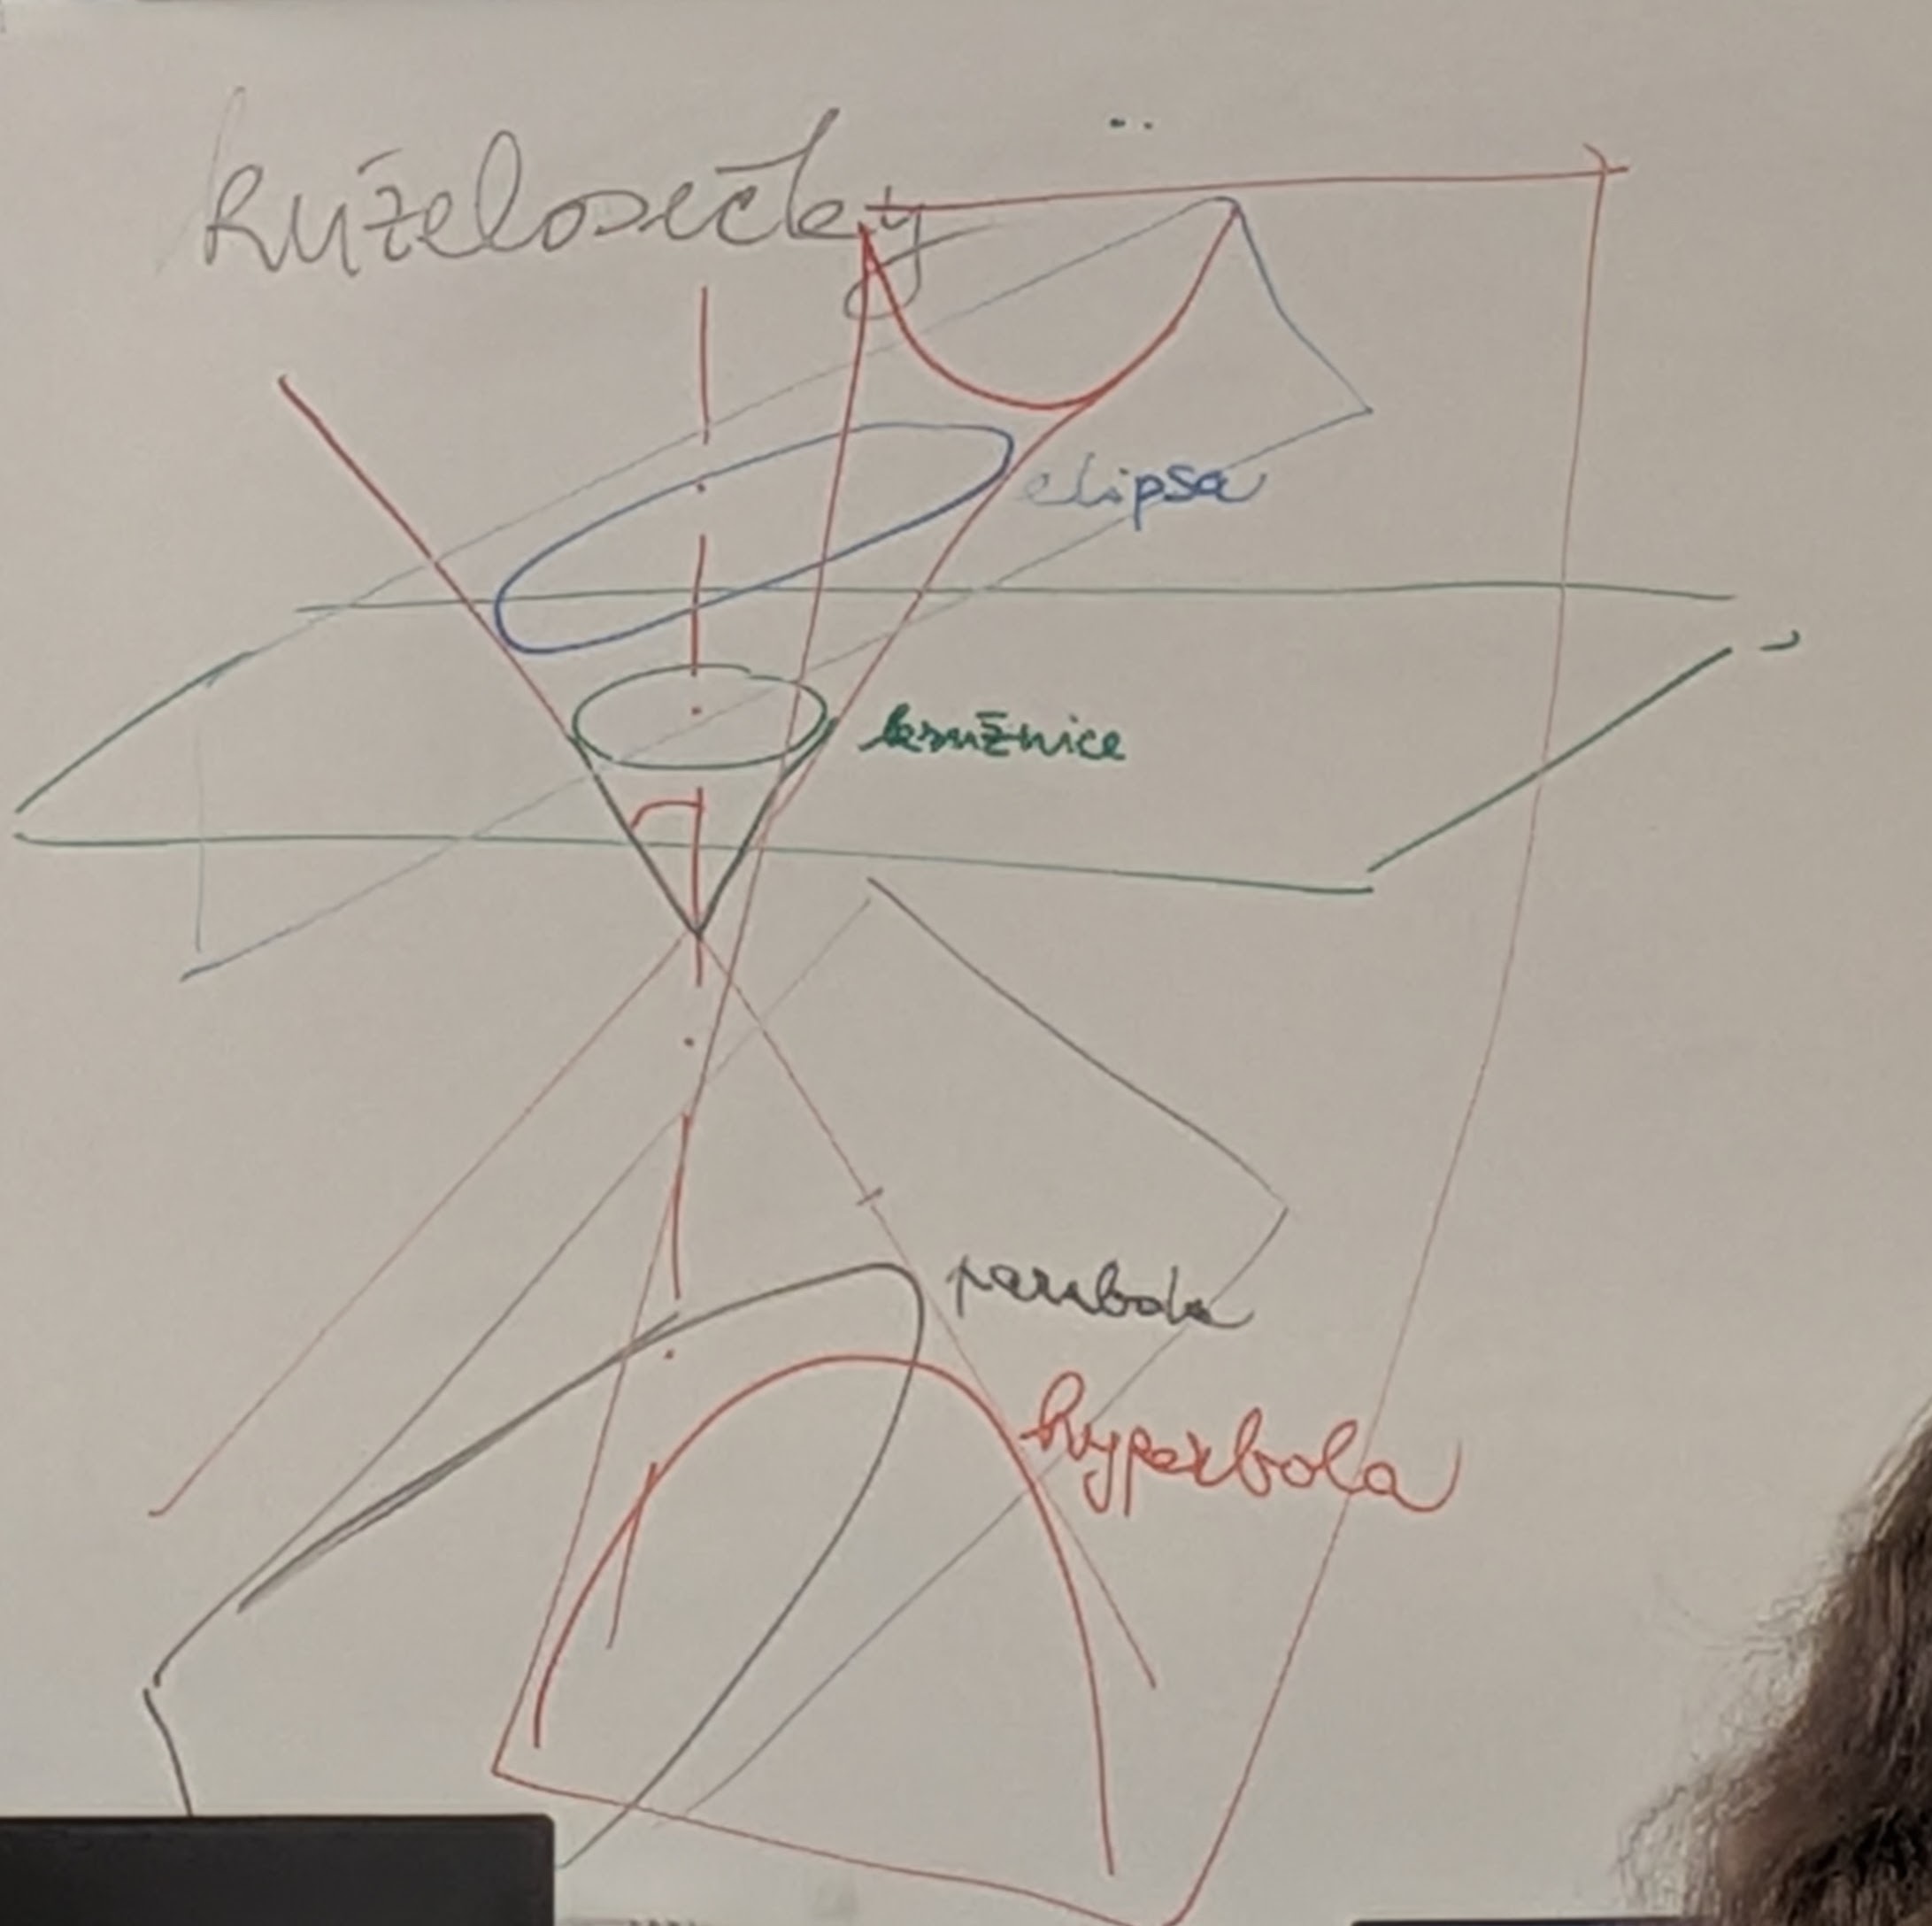 kuželosečky
elipsa
kružnice
parabola
hyperbola